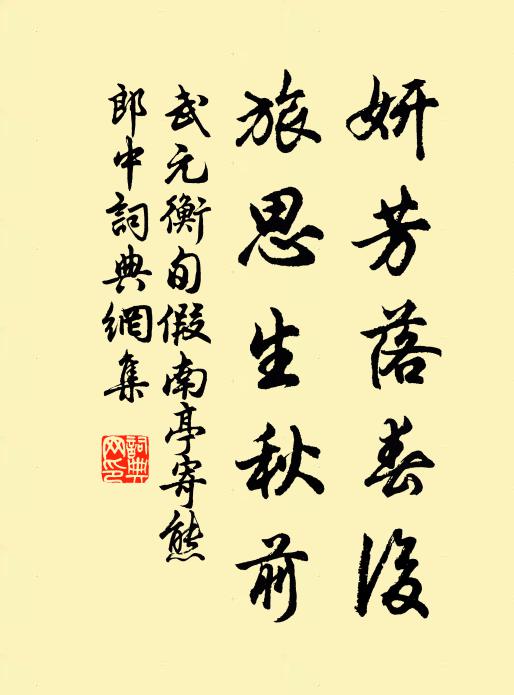 妍芳落春後
旅思生秋前
武元衡旬假南亭寄熊
郎中詞典網集
詞典
网印